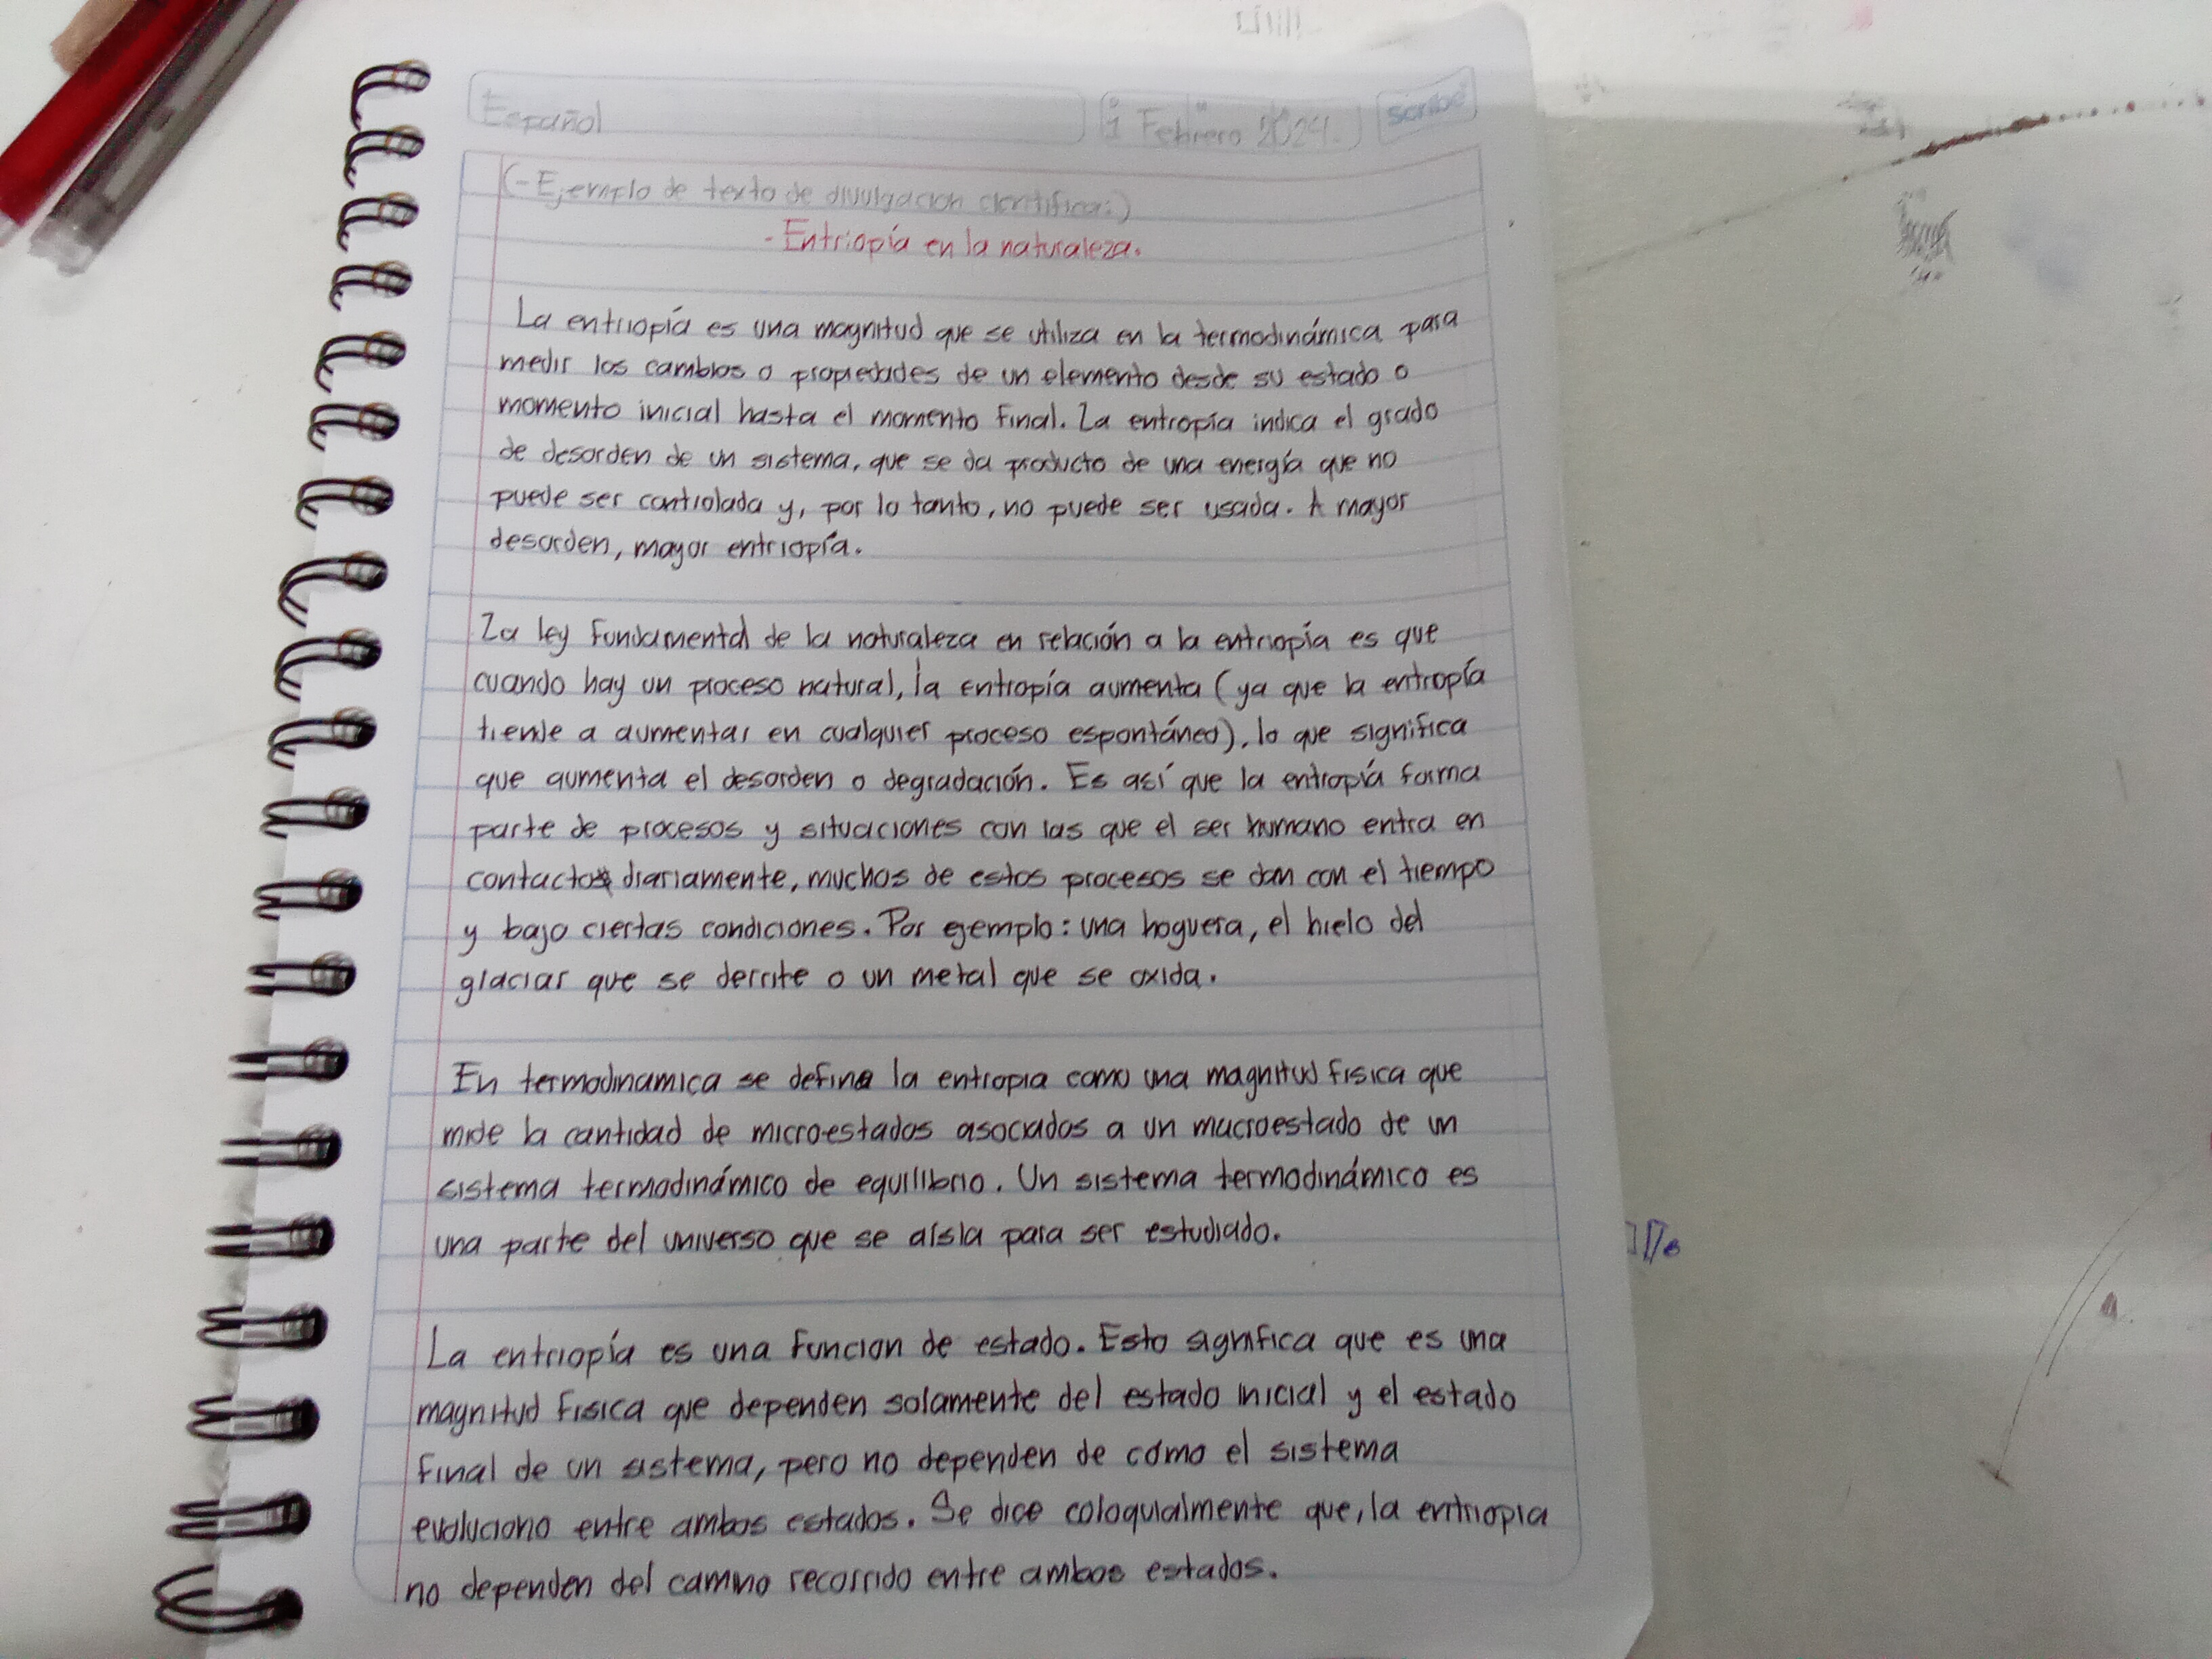 Español
1 Febrero 2024.
scribe
(-Ejemplo de texto de divulgacion cientifica:)
-Entriopía en la naturaleza.
La entriopía es una magnitud que se utiliza en la termodinámica para
medir los cambios o propiedades de un elemento desde su estado o
momento inicial hasta el momento final. La entropía indica el grado
de desorden de un sistema, que se da producto de una energía que no
puede ser controlada y, por lo tanto, no puede ser usada. A mayor
desorden, mayor entriopía.
La ley fundamental de la naturaleza en relación a la entriopía es que
cuando hay un proceso natural, la entropía aumenta (ya que la entropía
tiende a aumentar en cualquier proceso espontáneo), lo que significa
que aumenta el desorden o degradación. Es así que la entropía forma
parte de procesos y situaciones con las que el ser humano entra en
contacto diariamente, muchos de estos procesos se dan con el tiempo
y bajo ciertas condiciones. Por ejemplo: una hoguera, el hielo del
glaciar que se derrite o un metal que se oxida.
En termodinamica se define la entropia como una magnitud fisica que
mide la cantidad de microestados asociados a un macroestado de un
sistema termodinámico de equilibrio. Un sistema termodinámico es
una parte del universo que se aísla para ser estudiado.
La entriopía es una funcion de estado. Esto significa que es una
magnitud fisica que dependen solamente del estado inicial y el estado
final de un sistema, pero no dependen de cómo el sistema
evoluciono entre ambos estados. Se dice coloquialmente que, la entriopia
no dependen del camino recorrido entre ambos estados.